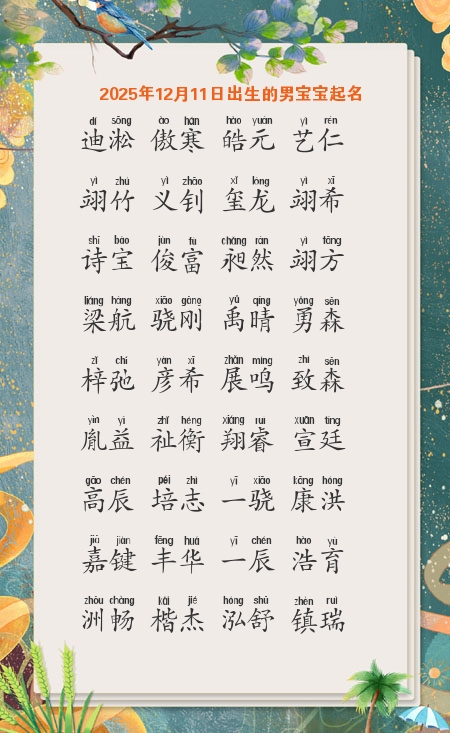 2025年12月11日出生的男宝宝起名
dí sōng ào hán hào yuán yì rén
迪淞 傲寒 皓元 艺仁
yì zhú yì zhāo xǐ lóng yì xī
翊竹 义钊 玺龙 翊希
shī bǎo jùn fù chǎng rán yì fāng
诗宝 俊富 昶然 翊方
liáng háng xiāo gāng yǔ qíng yǒng sēn
梁航 骁刚 禹晴 勇森
zǐ chí yàn xī zhǎn míng zhì sēn
梓弛 彦希 展鸣 致森
yìn yì zhǐ héng xiáng ruì xuān tíng
胤益 祉衡 翔睿 宣廷
gāo chén péi zhì yī xiāo kāng hóng
高辰 培志 一骁 康洪
jiā jiàn fēng huá yī chén hào yù
嘉键 丰华 一辰 浩育
zhōu chàng kǎi jié hóng shū zhèn ruì
洲畅 楷杰 泓舒 镇瑞